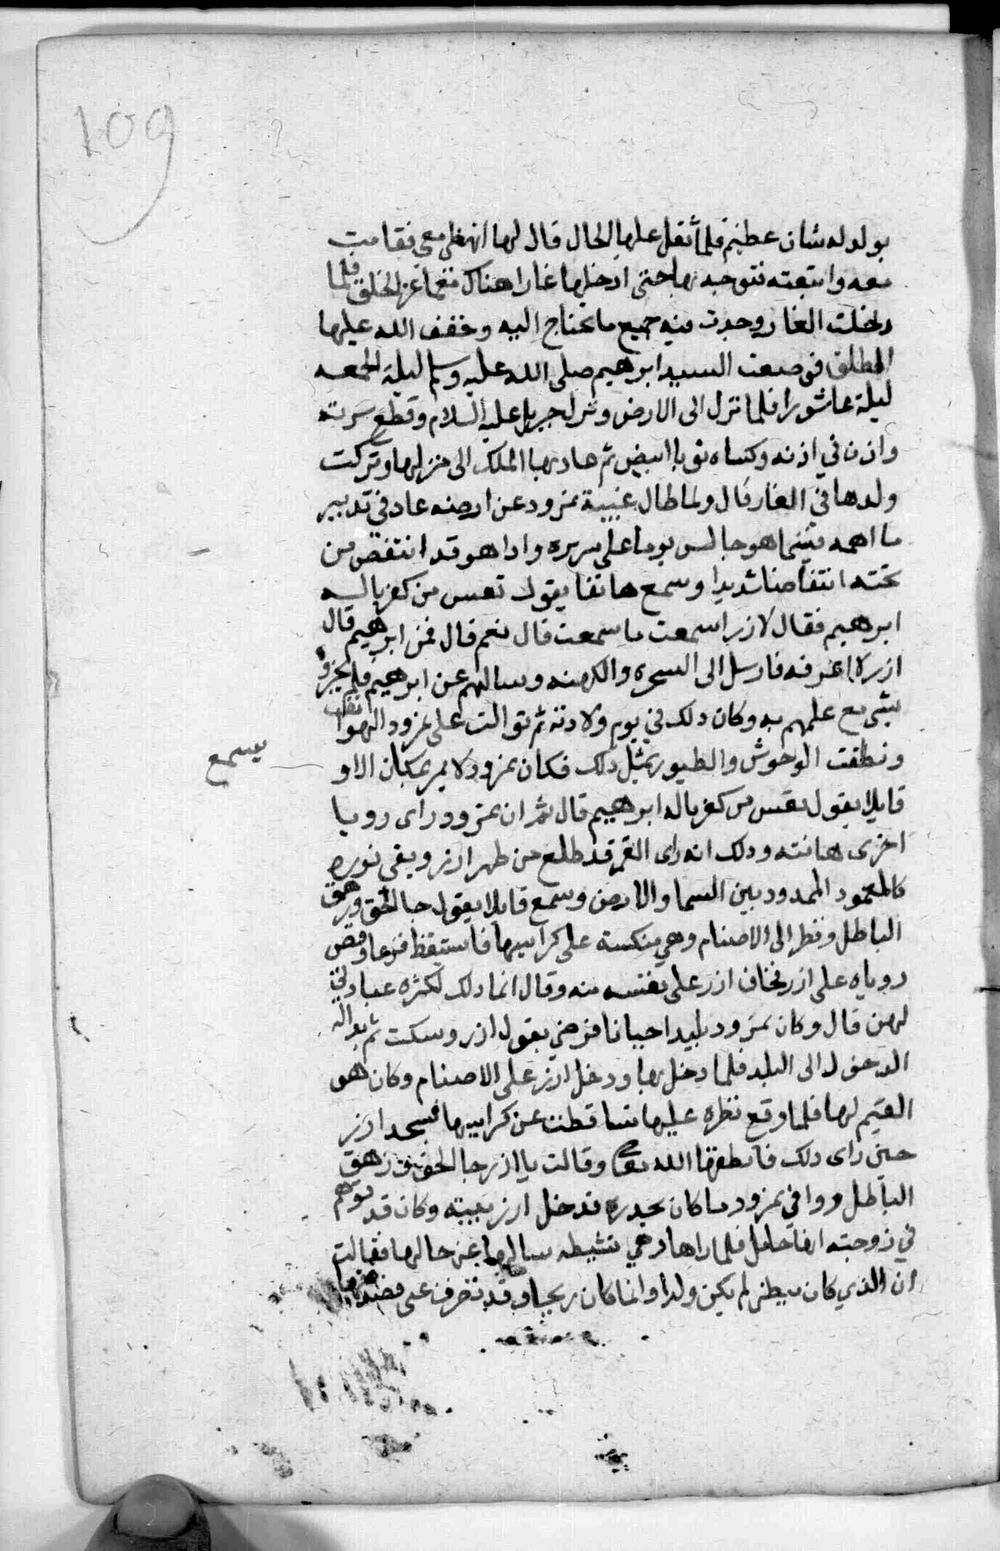 109
بولد له شان عظيم فلما ثقل عليها الحال قال لها انهظي معي فقامت
معه واتبعته فتوجه بها حتى ادخلها غارا هناك مغما عن الخلق فلما
دخلت الغار وجدت فيه جميع ما تحتاج اليه وخفف الله عليها
المطلق فوضعت السيد ابرهيم صلى الله عليه وسلم ليلة الجمعه
ليلة عاشورا فلما نزل الى الارض ونزل جبريل عليه السلام وقطع سرته
واذن في اذنه وكساه ثوبا ابيض ثم عاد بها الملك الى منزلها وتركت
ولدها في الغار قال ولما طال غيبة نمرود عن ارضه عاد في تدبير
ما اهمه فبينما هو جالس يوما على سريره واذا هو قد انتفض من
تحته انتفاضا شديدا وسمع هاتفا يقول تعس من كفر باله
ابرهيم فقال لازر اسمعت ما سمعت قال نعم قال فمن ابرهيم قال
ازر لا اعرفه فارسل الى السحره والكهنه وسالهم عن ابرهيم فلم يخبروه
بشي مع علمهم به وكان دلك في يوم ولادته ثم توالت على نمرود الهواتف
ونطقت الوحوش والطيور بمثل دلك فكان نمرود لا يمر بمكان الا و
يسمع
قايلا يقول تعس من كفر باله ابرهيم قال ثم ان نمرود راى رويا
اخرى هانته ودلك انه راى القمر قد طلع من ظهر ازر وبقى نوره
كالعمود الممدود بين السما والارض وسمع قايلا يقول جا الحق وزهق
الباطل ونظر الى الاصنام وهي منكسة على كراسيها فاستيقظ فزعا وقص
روياه على ازر فخاف ازر على نفسه منه وقال انما دلك لكثرة عبادتي
لهن قال وكان نمرود بليدا جبانا فرضي بقول ازر وسكت ثم
الدخول الى البلد فلما دخل بها ودخل ازر على الاصنام وكان هو
القيم لها فلما وقع نظره عليها تساقطت عن كراسيها فسجد ازر
حين راى دلك فانطقها الله تعالى وقالت يا ازر جا الحق وزهق
الباطل ووافي نمرود ما كان يحدره فدخل ازر بيته وكان قد توهم
في زوجته انها حامل فلما راها وهي نشيطه سالها عن حالها فقالت
ان الذي كان ببطني لم يكن ولدا وانما كان ريحا وقد تفرق عني